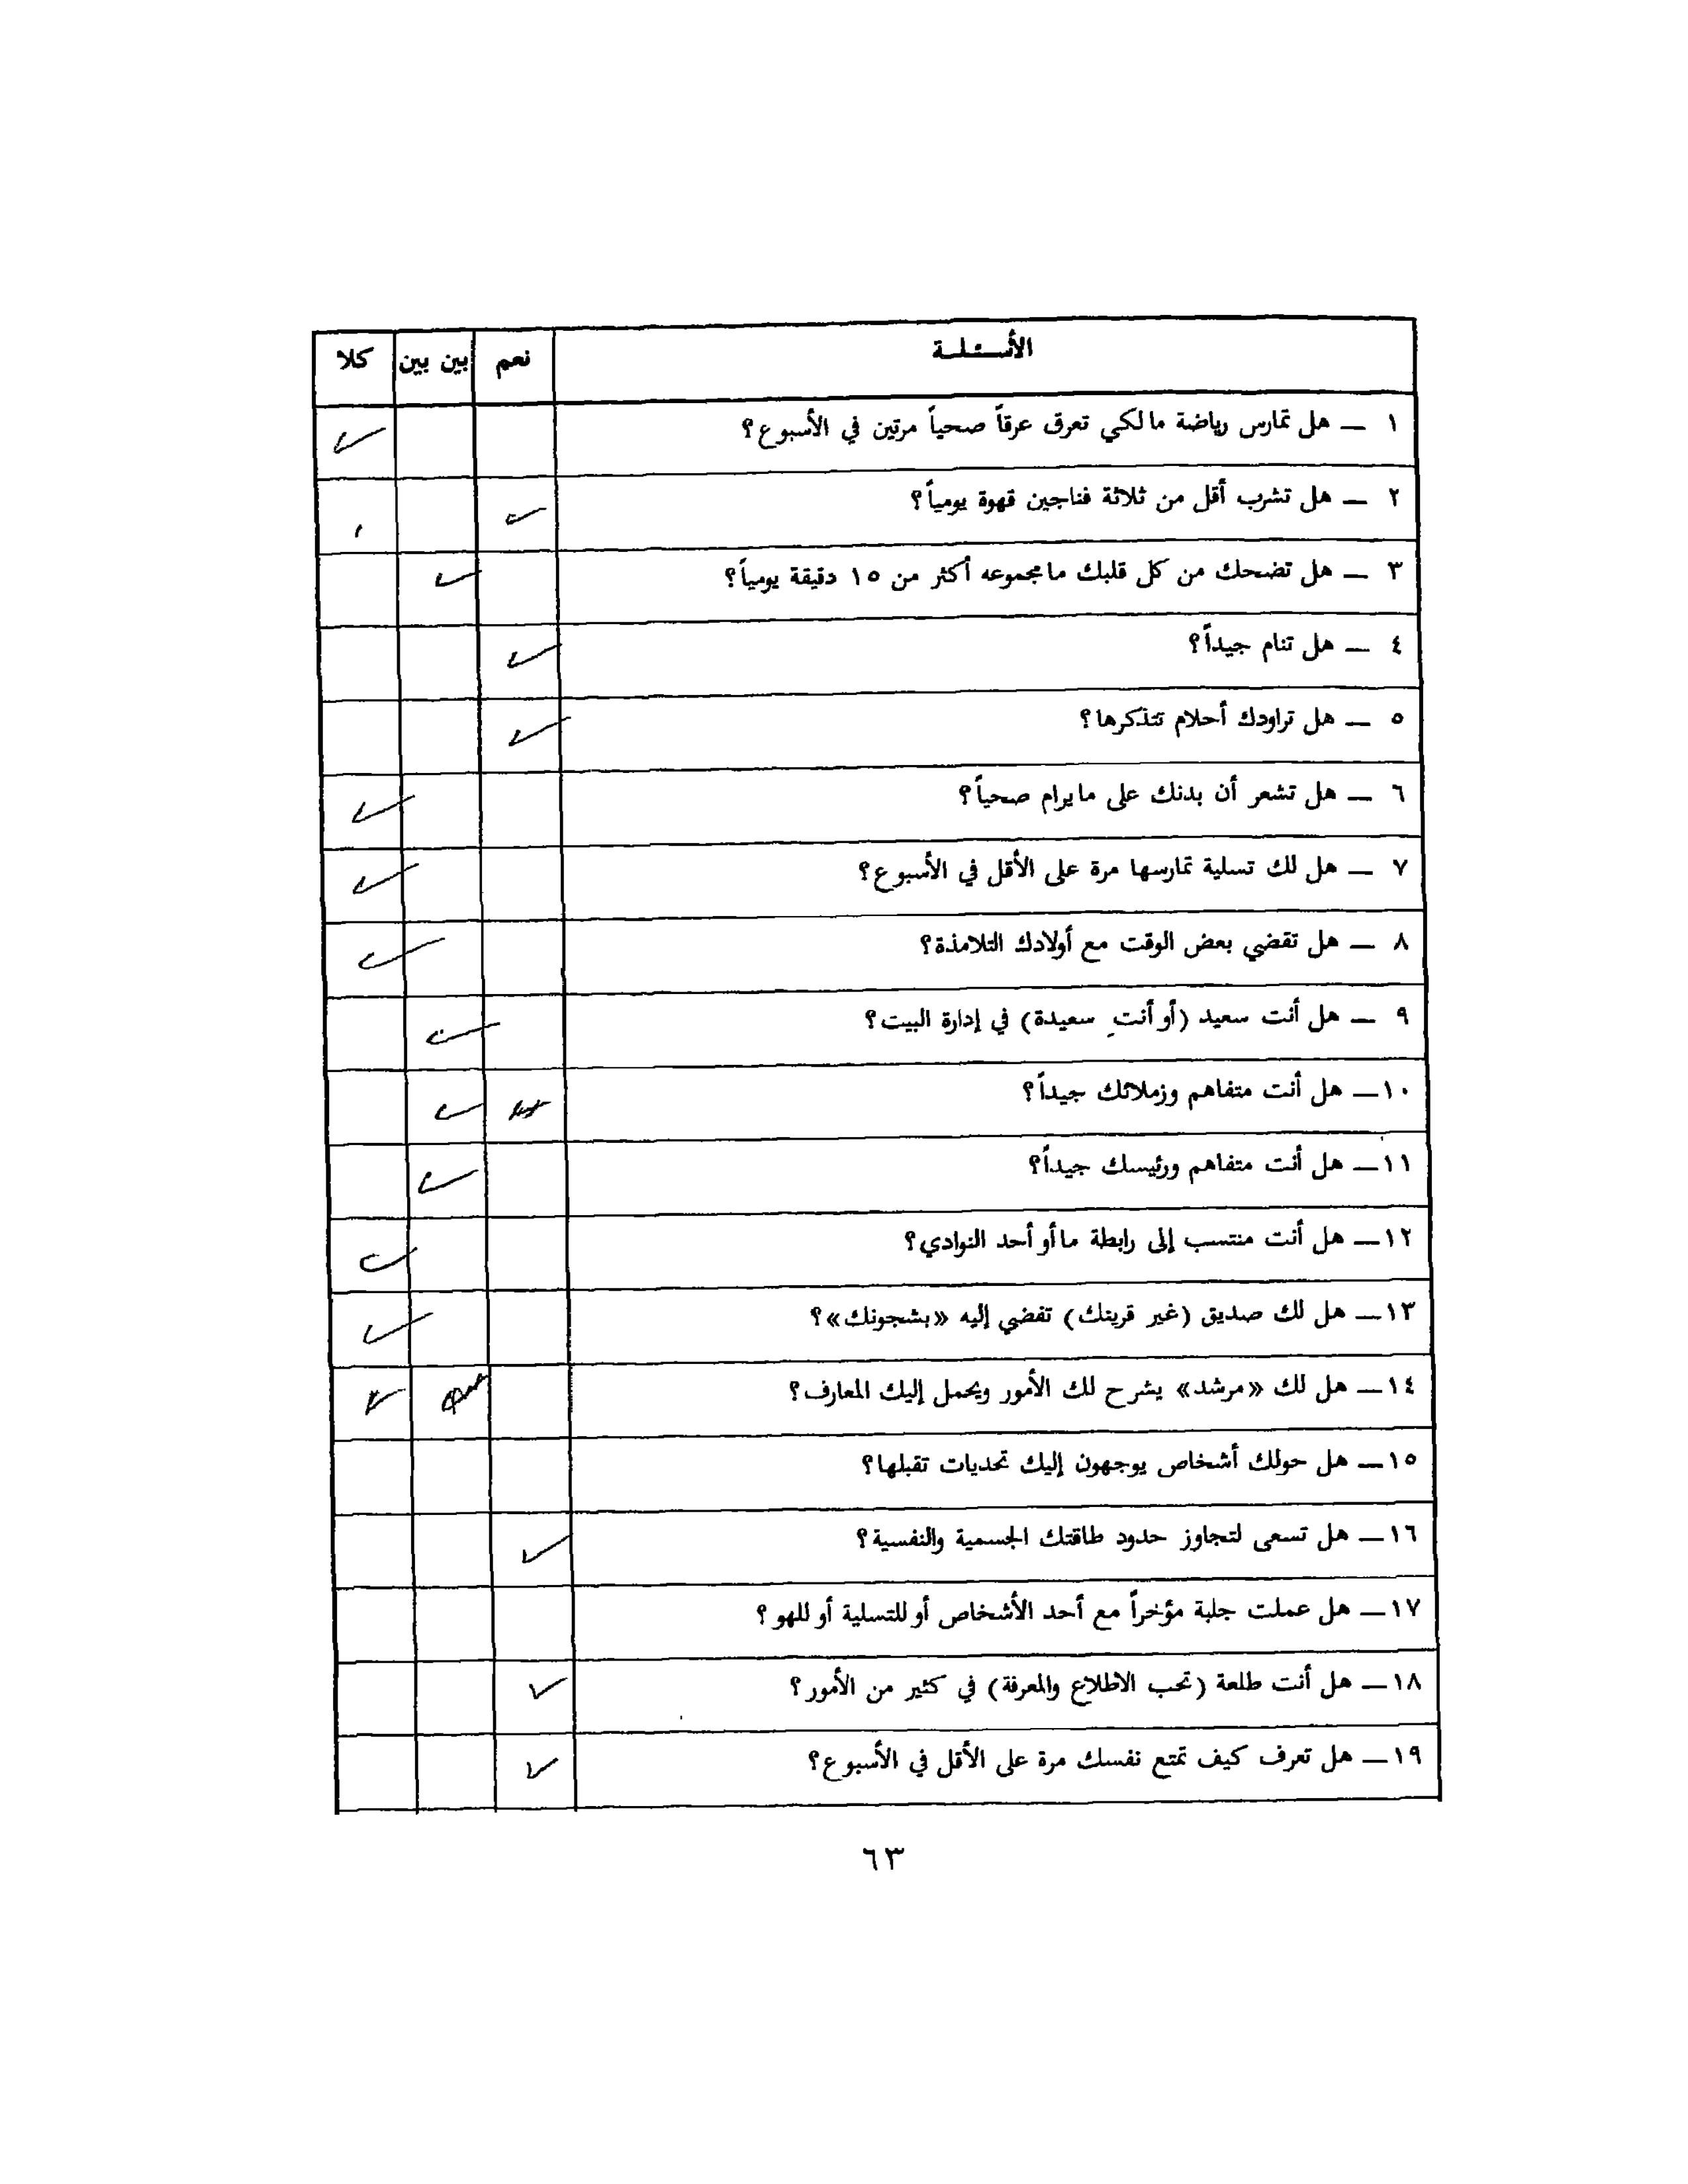 الأسئلة نعم بين بين كلا
١ — هل تمارس رياضة ما لكي تعرق عرقاً صحياً مرتين في الأسبوع؟ ✓
٢ — هل تشرب أقل من ثلاثة فناجين قهوة يومياً؟ ✓
٣ — هل تضحك من كل قلبك ما مجموعه أكثر من ١٥ دقيقة يومياً؟ ✓
٤ — هل تنام جيداً؟ ✓
٥ — هل تراودك أحلام تتذكرها؟ ✓
٦ — هل تشعر أن بدنك على ما يرام صحياً؟ ✓
٧ — هل لك تسلية تمارسها مرة على الأقل في الأسبوع؟ ✓
٨ — هل تقضي بعض الوقت مع أولادك التلامذة؟ ✓
٩ — هل أنت سعيد (أو أنتِ سعيدة) في إدارة البيت؟ ✓
١٠ — هل أنت متفاهم وزملائك جيداً؟ ✓
١١ — هل أنت متفاهم ورئيسك جيداً؟ ✓
١٢ — هل أنت منتسب إلى رابطة ما أو أحد النوادي؟ ✓
١٣ — هل لك صديق (غير قرينك) تفضي إليه «بشجونك»؟ ✓
١٤ — هل لك «مرشد» يشرح لك الأمور ويحمل إليك المعارف؟ ✓
١٥ — هل حولك أشخاص يوجهون إليك تحديات تقبلها؟
١٦ — هل تسعى لتجاوز حدود طاقتك الجسمية والنفسية؟ ✓
١٧ — هل عملت جلبة مؤخراً مع أحد الأشخاص أو للتسلية أو للهو؟
١٨ — هل أنت طلعة (تحب الاطلاع والمعرفة) في كثير من الأمور؟ ✓
١٩ — هل تعرف كيف تمتع نفسك مرة على الأقل في الأسبوع؟ ✓
٦٣